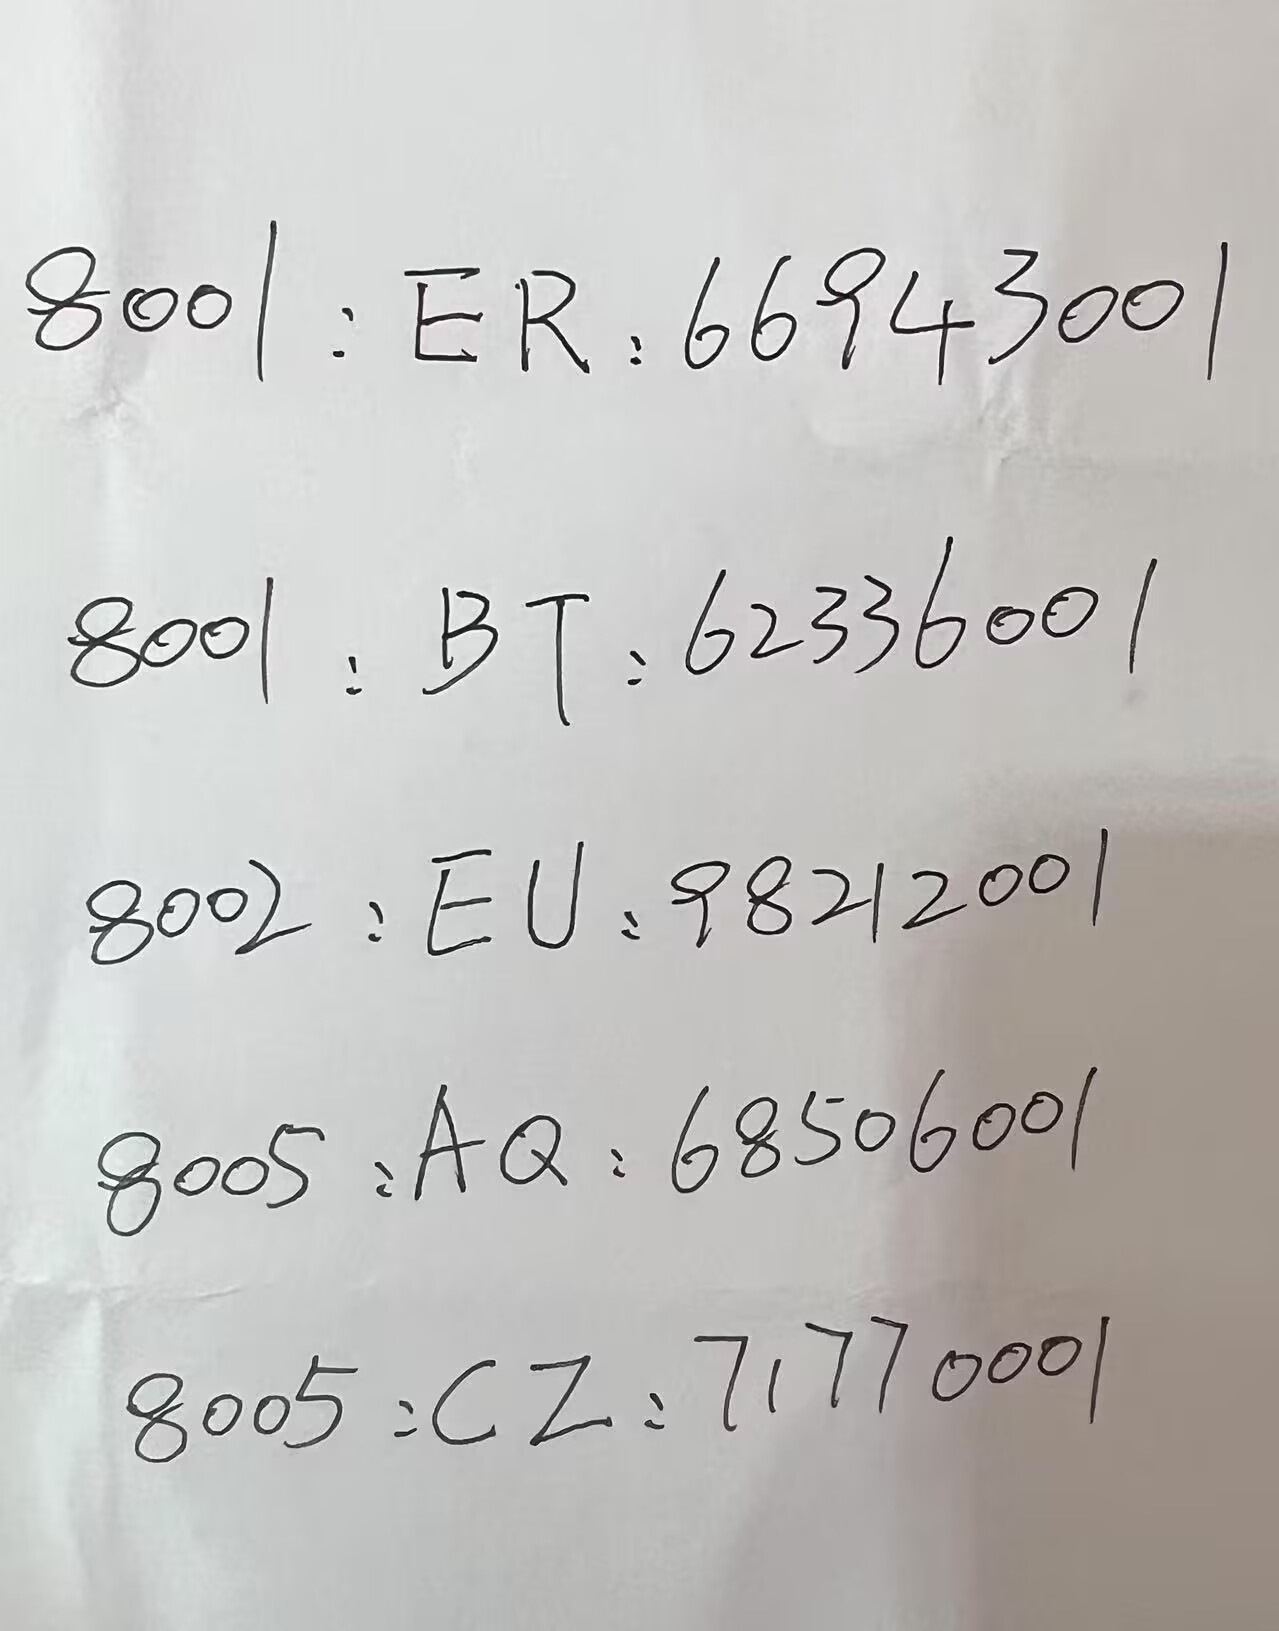 8001:ER:66943001
8001:BT:62336001
8002:EU:98212001
8005:AQ:68506001
8005:CZ:71770001